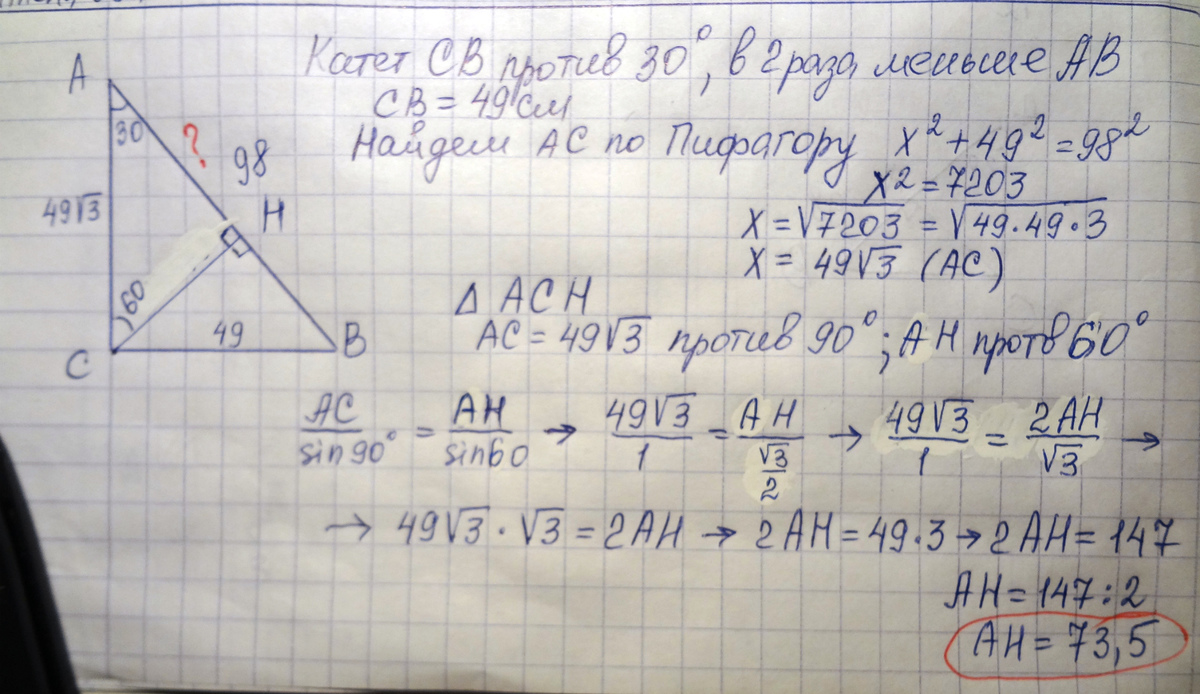 Катет CB против 30°, в 2 раза меньше AB
CB = 49 см
Найдем AC по Пифагору x² + 49² = 98²
x² = 7203
x = √7203 = √49·49·3
x = 49√3 (AC)
A
30
?
98
H
49√3
60
49
B
C
Δ ACH
AC = 49√3 против 90°; AH протв 60°
AC/sin90° = AH/sin60 → 49√3/1 = AH/(√3/2) → 49√3/1 = 2AH/√3 →
→ 49√3 · √3 = 2AH → 2AH = 49·3 → 2AH = 147
AH = 147 : 2
AH = 73,5